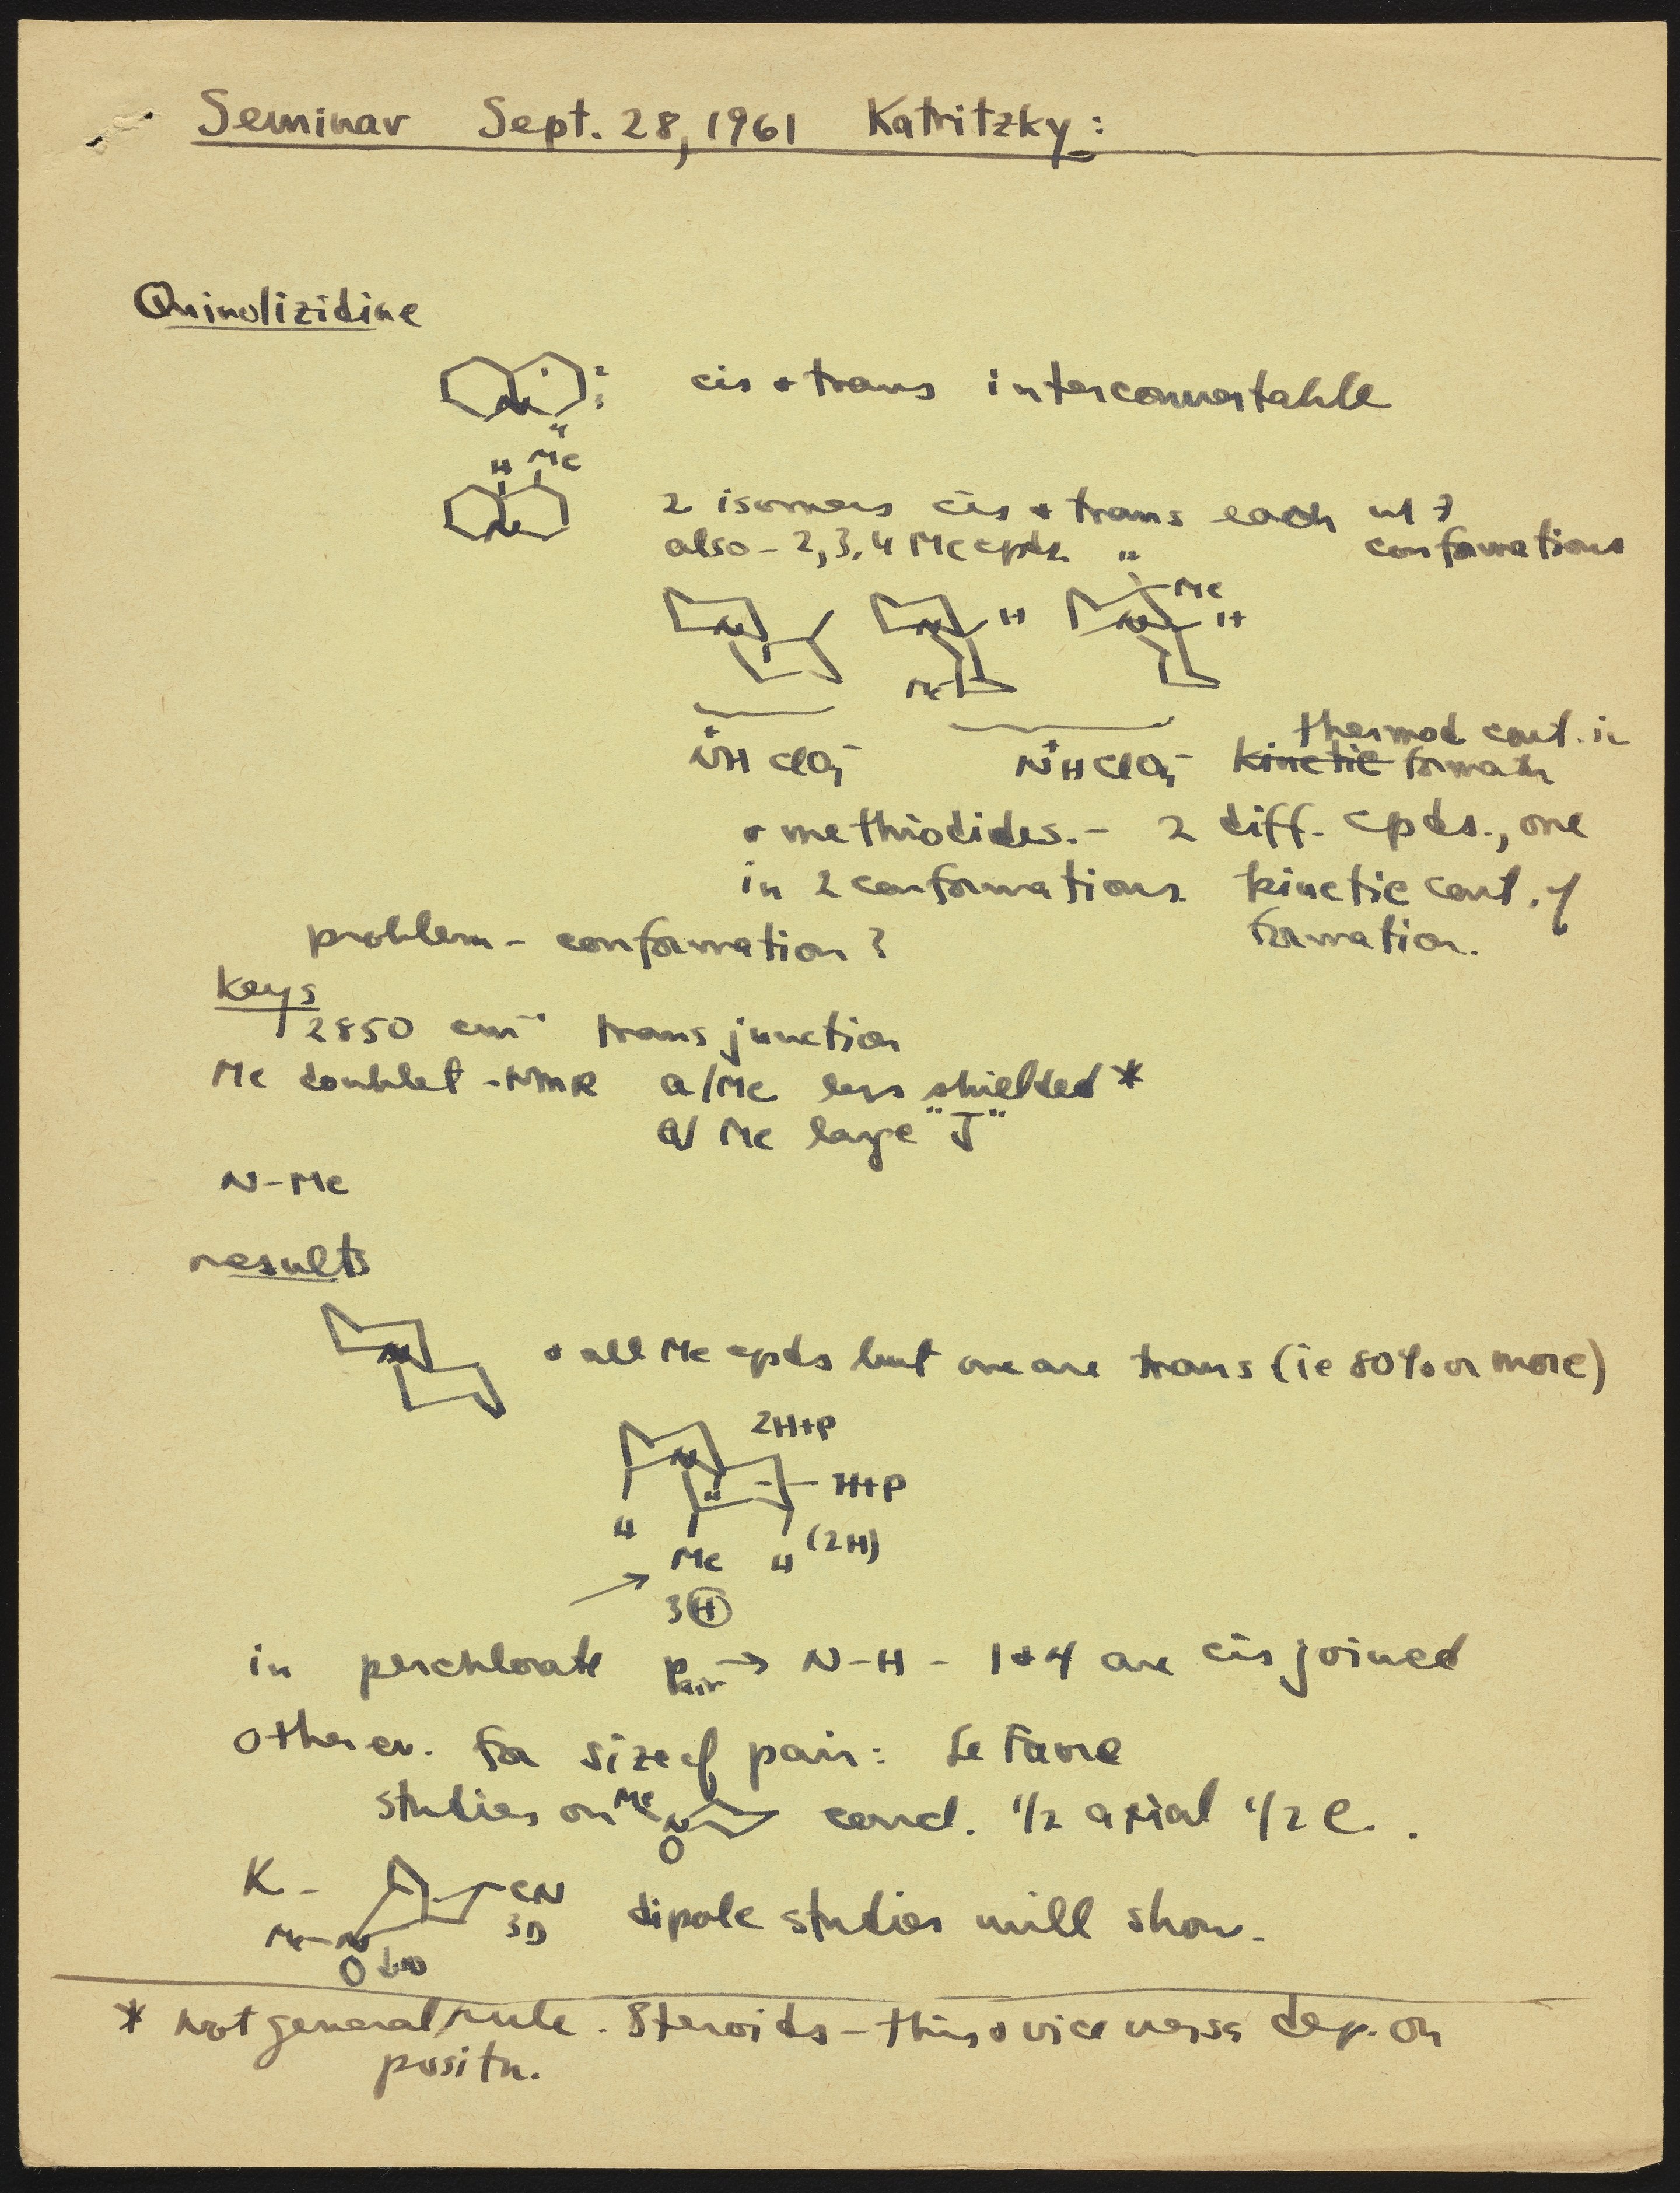 Seminar Sept. 28, 1961 Katritzky:
Quinolizidine
N 2 3 4
cis + trans interconvertable
H Me
N
2 isomers cis + trans each w/ 3
also - 2, 3, 4 Me cpds " conformations
N N H Me N Me H
N⁺H ClO₄⁻ N⁺H ClO₄⁻ thermod cont. in
~~kinetic~~ formatn
+ methiodides. - 2 diff. cpds., one
in 2 conformations kinetic cont. of
formation.
problem - conformation?
Keys
2850 cm⁻¹ trans junction
Me doublet - NMR a/Me less shielded *
a/ Me large "J"
N-Me
results
N
+ all Me cpds but one are trans (ie 80% or more)
2H+P
N
H+P
4 Me 4 (2H)
3 H
in perchlorate pair → N-H - 1+4 are cis joined
other ev. for size of pair: Le Favre
studies on Me N O concl. 1/2 axial 1/2 e.
K - Me-N O CN 3D
dipole studies will show.
* not general rule. Steroids - this + vice versa dep. on
positn.